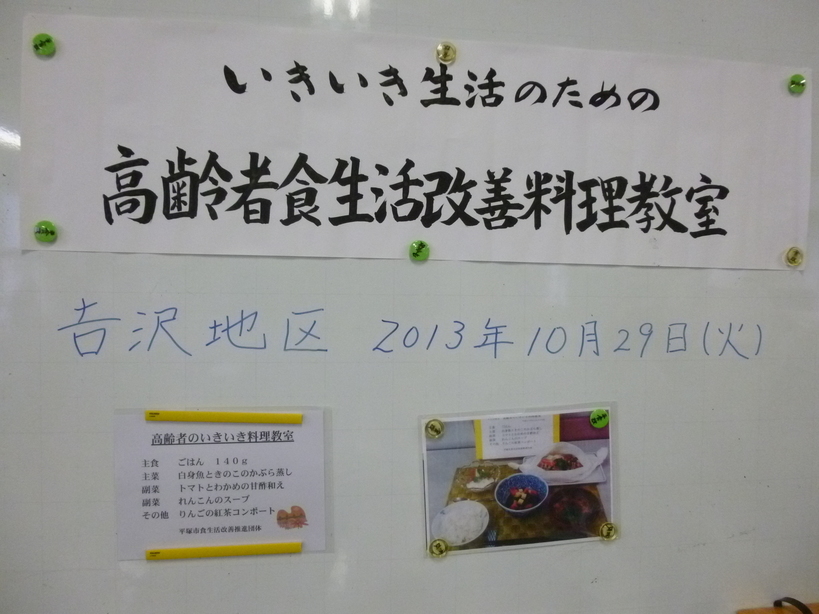 いきいき生活のための
高齢者食生活改善料理教室
吉沢地区 2013年10月29日(火)
高齢者のいきいき料理教室
主食 ごはん 140g
主菜 白身魚ときのこのかぶら蒸し
副菜 トマトとわかめの甘酢和え
副菜 れんこんのスープ
その他 りんごの紅茶コンポート
平塚市食生活改善推進団体